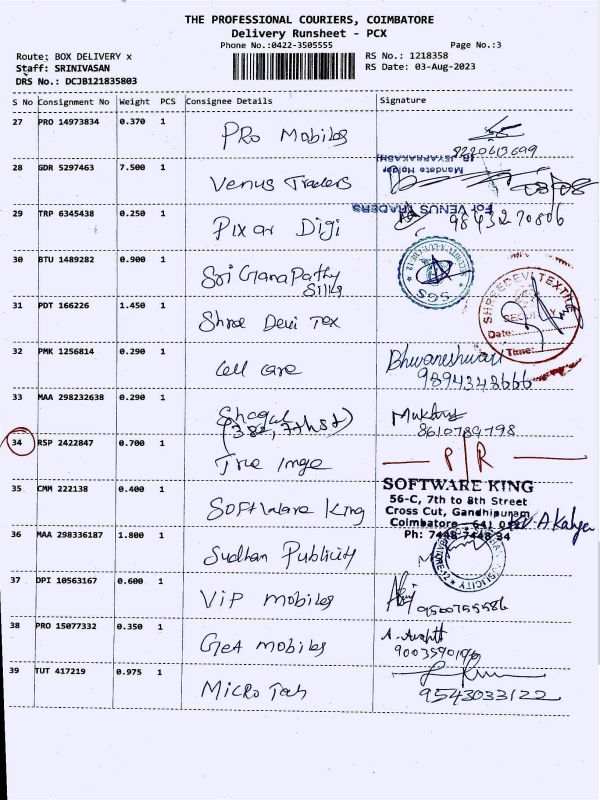 THE PROFESSIONAL COURIERS, COIMBATORE
Delivery Runsheet - PCX
Phone No.:0422-3505555 Page No.:3
Route: BOX DELIVERY x RS No.: 1218358
Staff: SRINIVASAN RS Date: 03-Aug-2023
DRS No.: DCJB121835803
S No Consignment No Weight PCS Consignee Details Signature
27 PRO 14973834 0.370 1
PRO Mobiles
8220613699
(R JEYAPRAKASH)
28 GDR 5297463 7.500 1 Mandate Holder
Venus Traders
For VENUS TRADERS
29 TRP 6345438 0.250 1 9843270806
Pixar Digi
30 BTU 1489282 0.900 1
Sri Ganapathy
Silks
SGS
31 PDT 166226 1.450 1
Shree Devi Tex
SHREEDEVI TEXTILE
SECURITY
Date:
Time:
32 PMK 1256814 0.290 1
Cell Care
Bhuvaneshwari
9894348666
33 MAA 298232638 0.290 1
(382, 7th st)
8610789798
34 RSP 2422847 0.700 1
True Image
P/R
35 CMM 222138 0.400 1
Software King
SOFTWARE KING
56-C, 7th to 8th Street
Cross Cut, Gandhipuram
Coimbatore - 641 0
Ph: 7448 7448 34
36 MAA 298336187 1.800 1
Sudhan Publicity
37 DPI 10563167 0.600 1
VIP mobiles
9500755586
38 PRO 15077332 0.350 1
GeA mobiles
39 TUT 417219 0.975 1
Micro Tah
9543033122